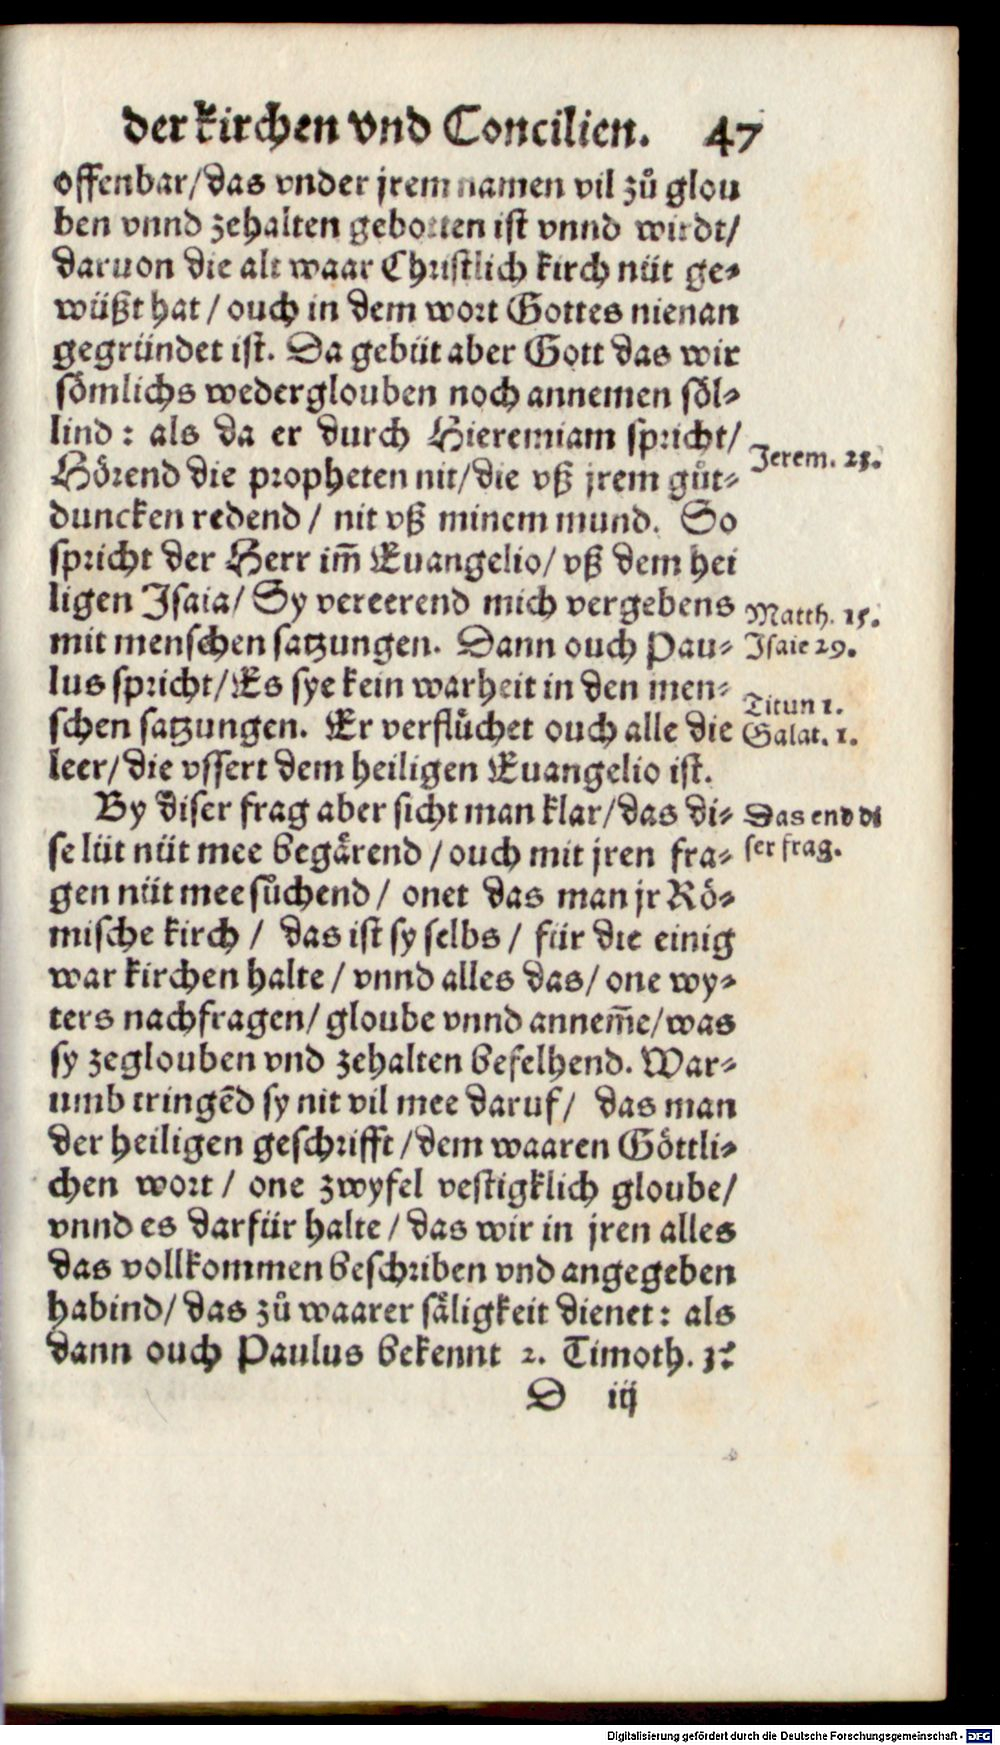 der kirchen vnd Concilien. 47
offenbar/das vnder jrem namen vil zů glou
ben vnnd zehalten gebotten ist vnnd wirdt/
daruon die alt waar Christlich kirch nüt ge⸗
wüßt hat / ouch in dem wort Gottes nienan
gegründet ist. Da gebüt aber Gott das wir
sömlichs weder glouben noch annemen söl⸗
lind : als da er durch Hieremiam spricht/
Jerem. 23.
Hörend die propheten nit/die vß jrem gůt⸗
duncken redend / nit vß minem mund. So
spricht der Herr im̄ Euangelio/ vß dem hei
ligen Isaia/ Sy vereerend mich vergebens
Matth. 15.
mit menschen satzungen. Dann ouch Pau⸗
Isaie 29.
lus spricht/Es sye kein warheit in den men⸗
Titun 1.
schen satzungen. Er verflůchet ouch alle die
Galat. 1.
leer/die vssert dem heiligen Euangelio ist.
By diser frag aber sicht man klar/das di⸗
Das end di
se lüt nüt mee begärend /ouch mit jren fra⸗
ser frag.
gen nüt mee sůchend / onet das man jr Rö⸗
mische kirch / das ist sy selbs / für die einig
war kirchen halte / vnnd alles das/ one wy⸗
ters nachfragen/ gloube vnnd annem̄e/was
sy zeglouben vnd zehalten befelhend. War⸗
umb tringēd sy nit vil mee daruf/ das man
der heiligen geschrifft /dem waaren Göttli⸗
chen wort / one zwyfel vestigklich gloube/
vnnd es darfür halte /das wir in jren alles
das vollkommen beschriben vnd angegeben
habind/das zů waarer säligkeit dienet: als
dann ouch Paulus bekennt 2. Timoth. 3:
D iij
Digitalisierung gefördert durch die Deutsche Forschungsgemeinschaft - DFG